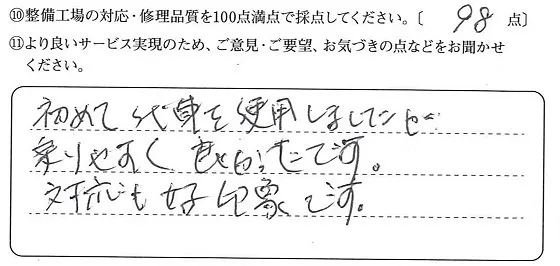 ⑩整備工場の対応・修理品質を100点満点で採点してください。〔 98 点〕
⑪より良いサービス実現のため、ご意見・ご要望、お気づきの点などをお聞かせ
ください。
初めて代車を使用しましたが
乗りやすく 良かったです。
対応も好印象です。